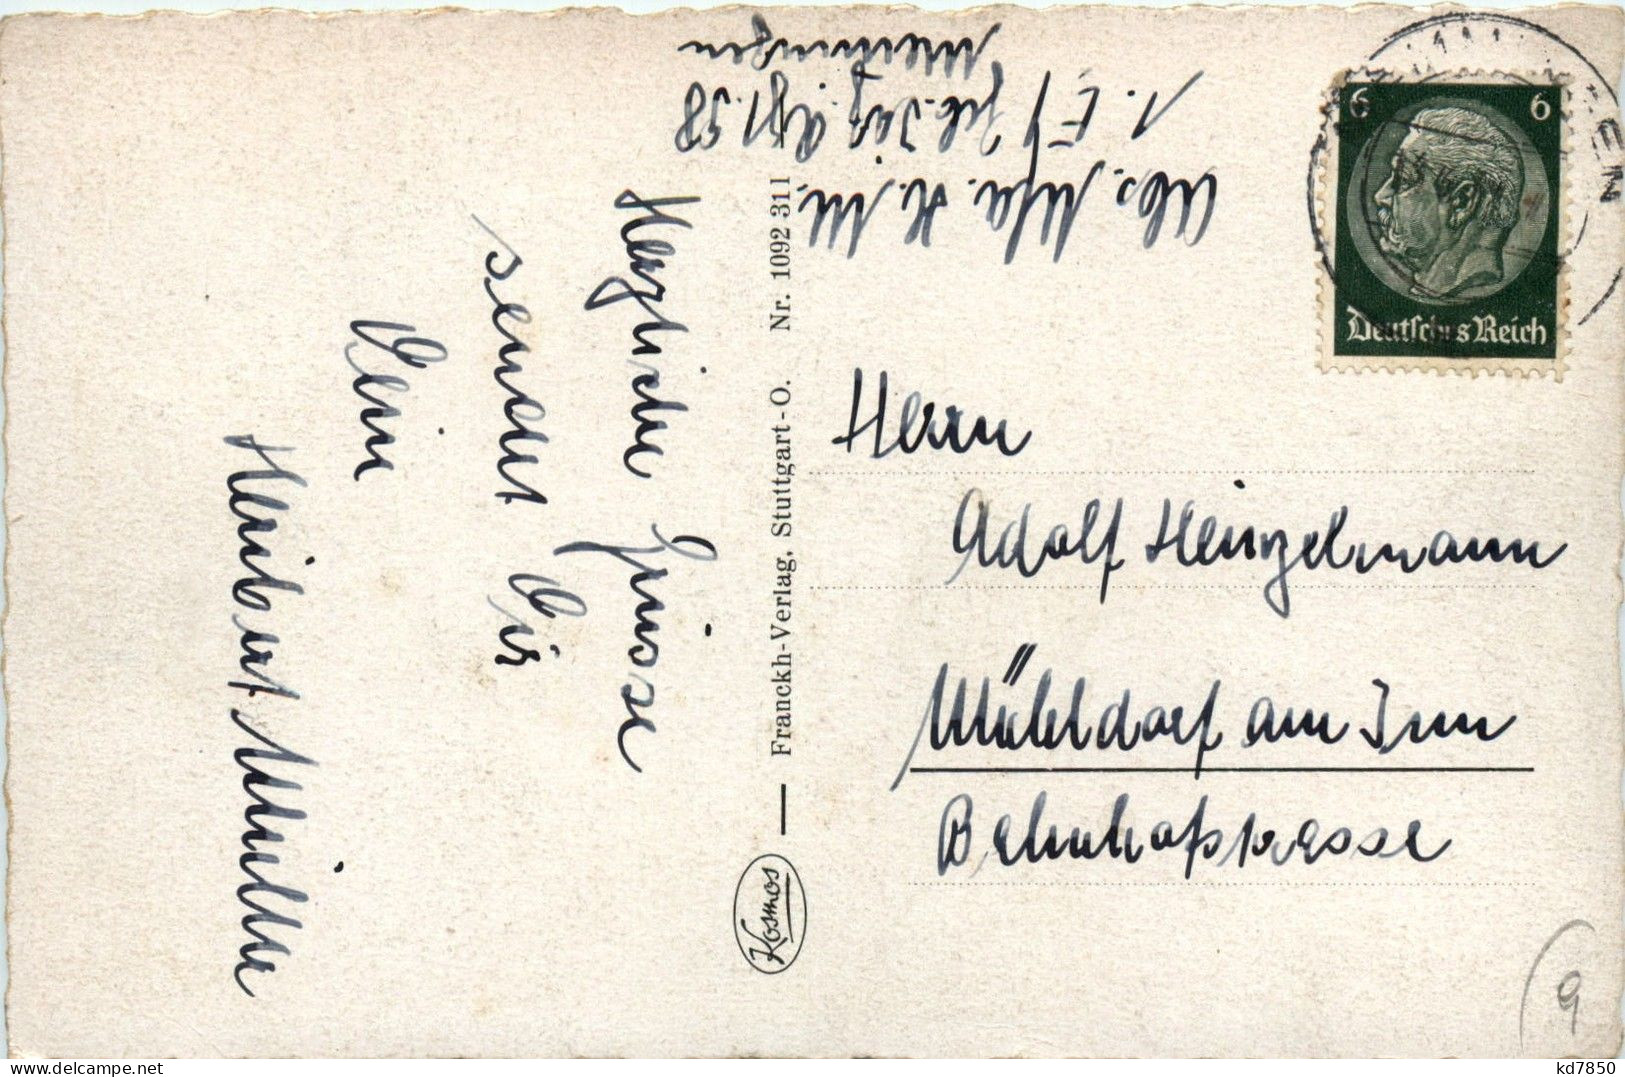 Herzliche Grüsse
sendet Dir
Dein
Heribert Müller
Kosmos
Franckh-Verlag, Stuttgart-O. Nr. 1092 311
Abs. H. M.
1.
Meiningen
6 6
Deutsches Reich
Herrn
Adolf Heinzelmann
Mühldorf am Inn
Bahnhofstrasse
9
delcampe.net
kd7850